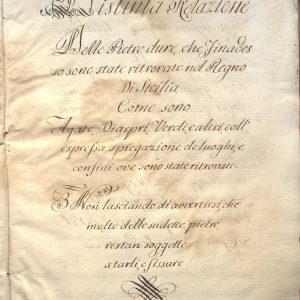 Distinta Relazione
Delle Pietre dure, che sin'ades
so sono state ritrovate nel Regno
Di Sicilia
Come sono
Agate, Diaspri, Verdi, e altri, coll'
espressa spiegazione de luoghi, e
confini ove sono state ritrovate.
Non lasciando di avvertirsi, che
molte delle sudette pietre
restan soggette
a tarli, e fissure